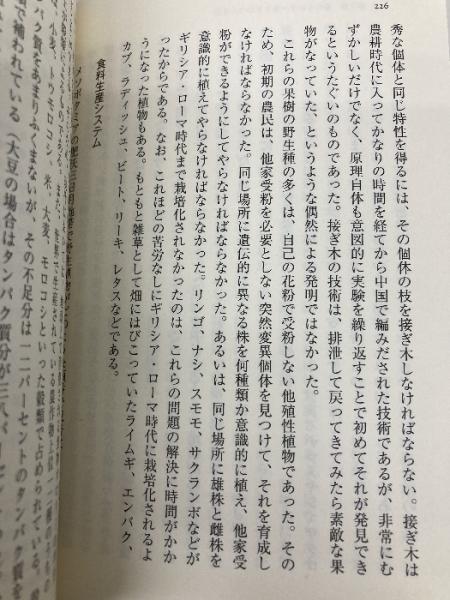 226
秀な個体と同じ特性を得るには、その個体の枝を接ぎ木しなければならない。接ぎ木は
農耕時代に入ってかなりの時間を経てから中国で編みだされた技術であるが、非常にむ
ずかしいだけでなく、原理自体も意図的に実験を繰り返すことで初めてそれが発見でき
るというたぐいのものであった。接ぎ木の技術は、排泄して戻ってきてみたら素敵な果
物がなっていた、というような偶然による発明ではなかった。
これらの果樹の野生種の多くは、自己の花粉で受粉しない他殖性植物であった。その
ため、初期の農民は、他家受粉を必要としない突然変異個体を見つけて、それを育成し
なければならなかった。同じ場所に遺伝的に異なる株を何種類か意識的に植え、他家受
粉ができるようにしてやらなければならなかった。あるいは、同じ場所に雄株と雌株を
意識的に植えてやらなければならなかった。リンゴ、ナシ、スモモ、サクランボなどが
ギリシア・ローマ時代まで栽培化されなかったのは、これらの問題の解決に時間がかか
ったからである。なお、これほどの苦労なしにギリシア・ローマ時代に栽培化されるよ
うになった植物もある。もともと雑草として畑にはびこっていたライムギ、エンバク、
カブ、ラディッシュ、ビート、リーキ、レタスなどである。
食料生産システム
メソポタミアの肥沃三日月地帯
小麦、トウモロコシ、米、大麦、モロコシといった穀類で占められている。
パク質をあまりふくまないが、その不足分は
で補われている（大豆の場合はタンパク質分が三八パーセ